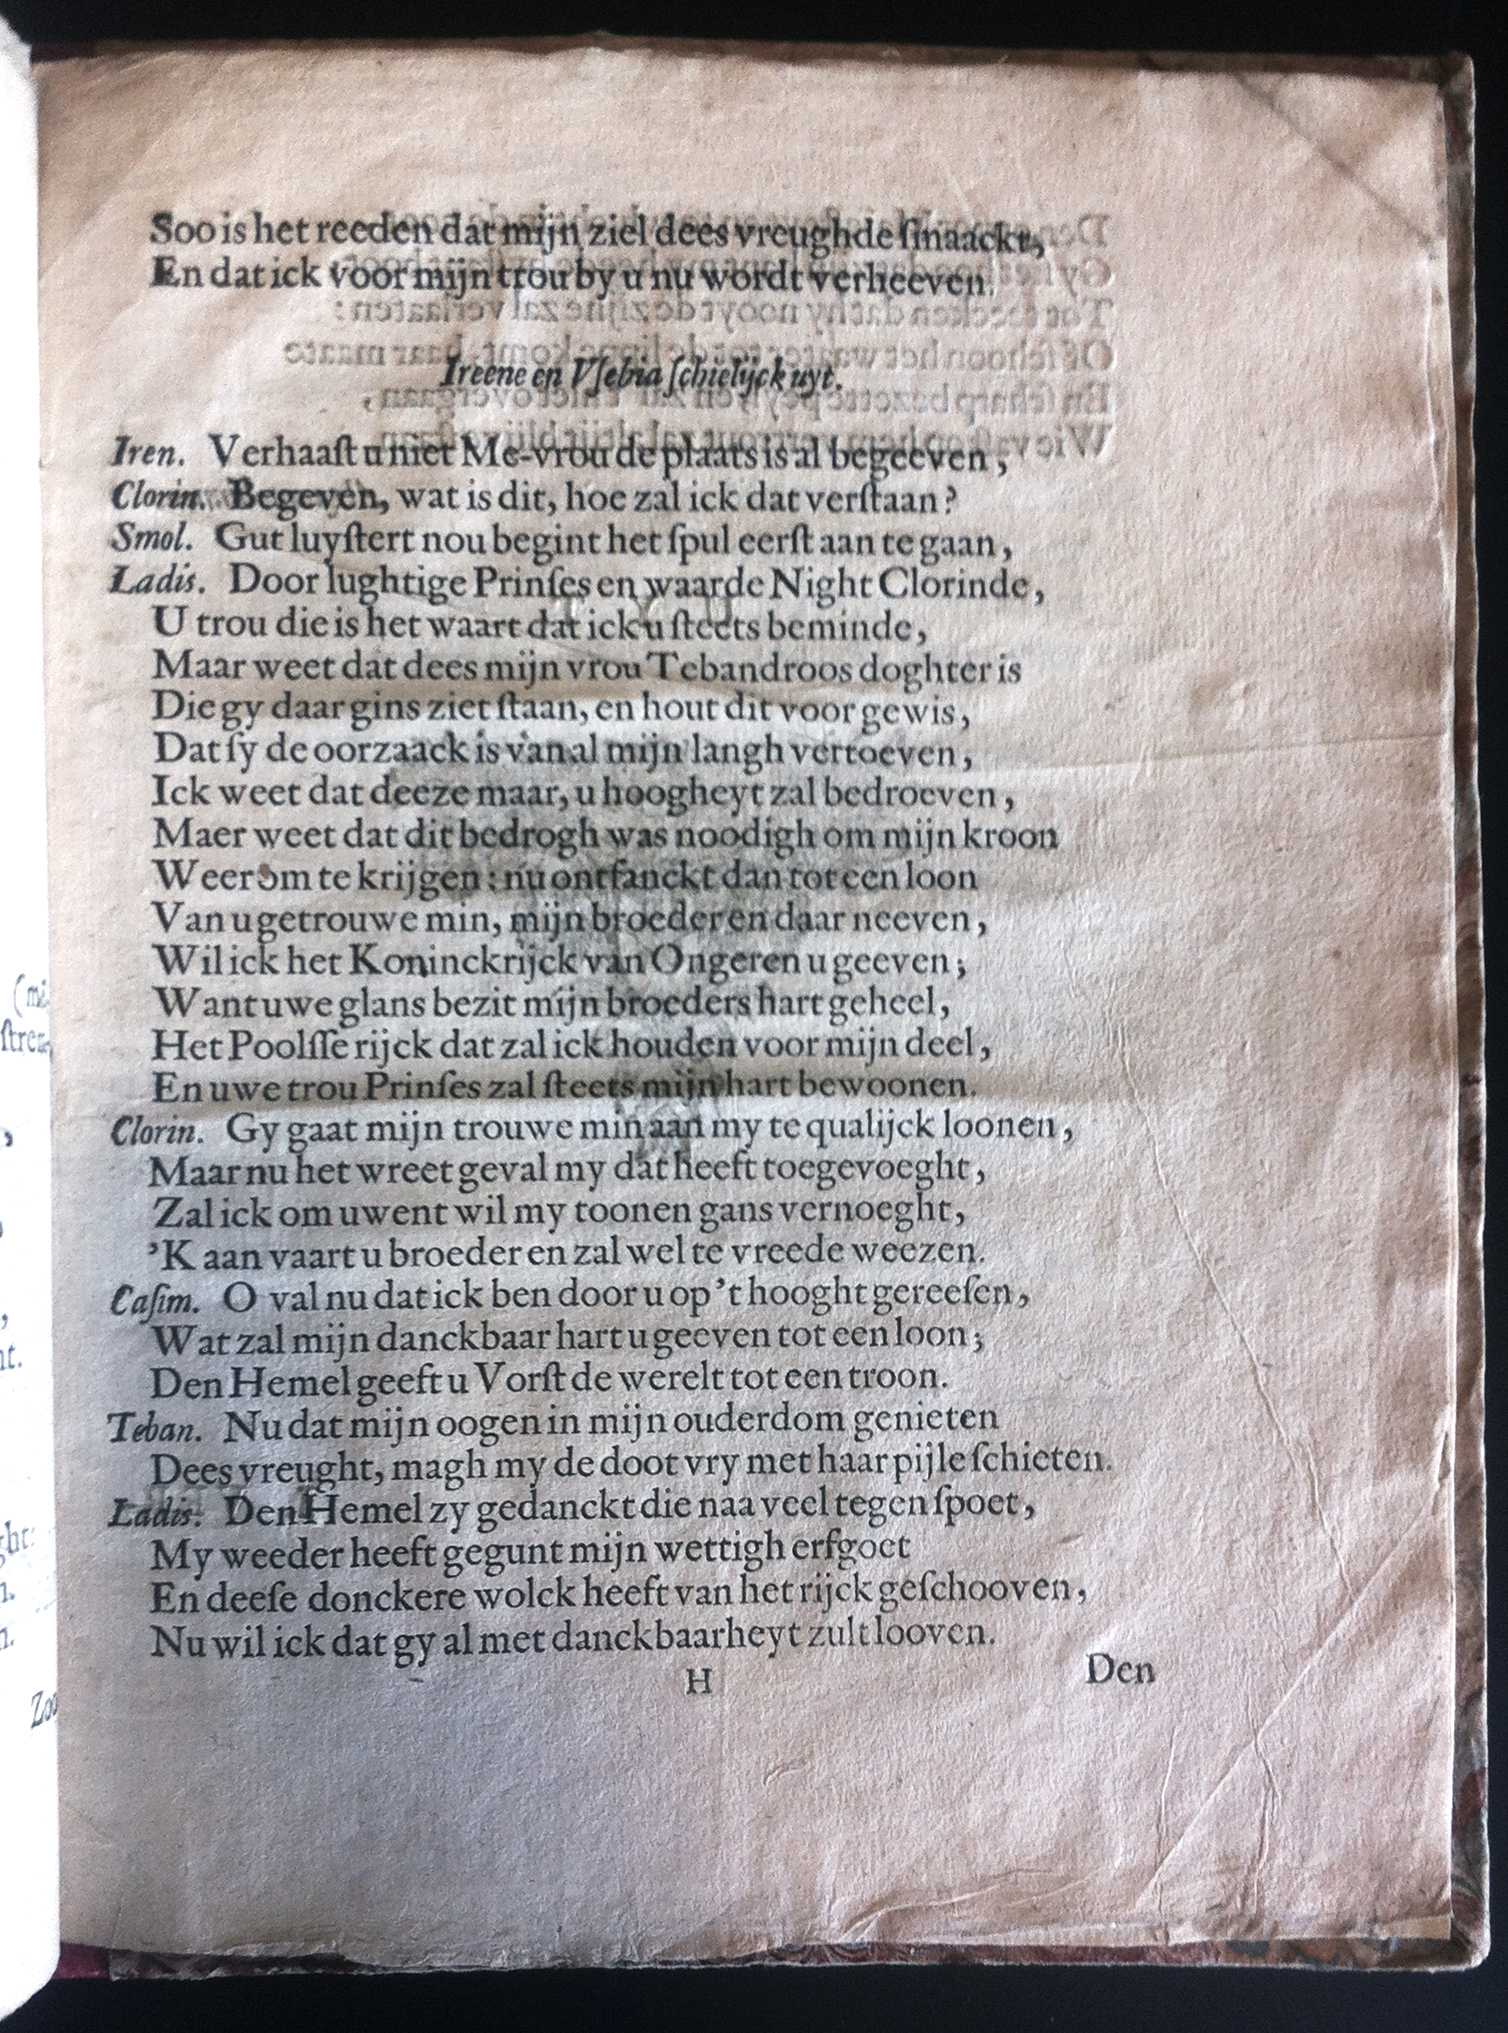 Soo is het reeden dat mijn ziel dees vreughde ſmaackt,
En dat ick voor mijn trou by u nu wordt verheeven.
Ireene en Vſebia ſchielijck uyt.
Iren. Verhaaſt u niet Me-vrou de plaats is al begeeven,
Clorin. Begeven, wat is dit, hoe zal ick dat verſtaan?
Smol. Gut luyſtert nou begint het ſpul eerſt aan te gaan,
Ladis. Door lughtige Prinſes en waarde Night Clorinde,
U trou die is het waart dat ick u ſteets beminde,
Maar weet dat dees mijn vrou Tebandroos doghter is
Die gy daar gins ziet ſtaan, en hout dit voor gewis,
Dat ſy de oorzaack is van al mijn langh vertoeven,
Ick weet dat deeze maar, u hoogheyt zal bedroeven,
Maer weet dat dit bedrogh was noodigh om mijn kroon
Weer om te krijgen: nu ontfanckt dan tot een loon
Van u getrouwe min, mijn broeder en daar neeven,
Wil ick het Koninckrijck van Ongeren u geeven;
Want uwe glans bezit mijn broeders hart geheel,
Het Poolſſe rijck dat zal ick houden voor mijn deel,
En uwe trou Prinſes zal ſteets mijn hart bewoonen.
Clorin. Gy gaat mijn trouwe min aan my te qualijck loonen,
Maar nu het wreet geval my dat heeft toegevoeght,
Zal ick om uwent wil my toonen gans vernoeght,
'K aan vaart u broeder en zal wel te vreede weezen.
Caſim. O val nu dat ick ben door u op 't hooght gereeſen,
Wat zal mijn danckbaar hart u geeven tot een loon;
Den Hemel geeft u Vorſt de werelt tot een troon.
Teban. Nu dat mijn oogen in mijn ouderdom genieten
Dees vreught, magh my de doot vry met haar pijle ſchieten.
Ladis. Den Hemel zy gedanckt die naa veel tegen ſpoet,
My weeder heeft gegunt mijn wettigh erfgoet
En deeſe donckere wolck heeft van het rijck geſchooven,
Nu wil ick dat gy al met danckbaarheyt zult looven.
H
Den